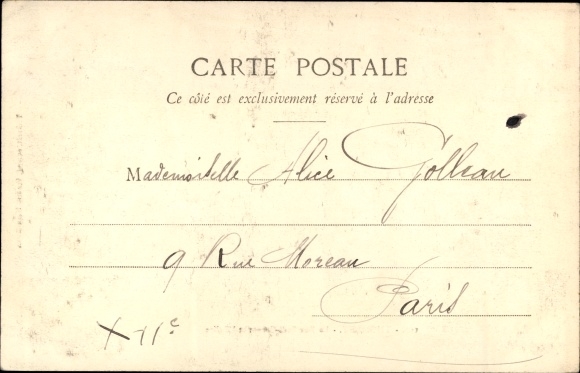 CARTE POSTALE
Ce côté est exclusivement réservé à l'adresse
Mademoiselle Alice Golleau
9 Rue Moreau
Paris
XIIe